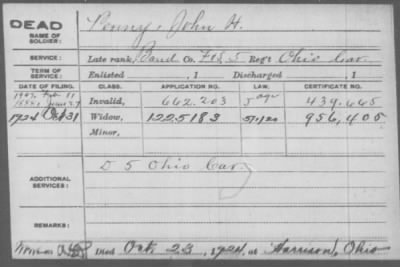 DEAD
NAME OF SOLDIER:
Penny, John H.
SERVICE:
Late rank, Band Co. F&S 5 Reg't Ohio Cav.
TERM OF SERVICE:
Enlisted , 1 Discharged , 1
DATE OF FILING. CLASS. APPLICATION NO. LAW. CERTIFICATE NO.
Invalid, 662.203 439.665
1924 Oct 31 Widow, 1225183 956,405
Minor,
ADDITIONAL SERVICES:
D 5 Ohio Cav
REMARKS:
Died Oct. 23, 1924, at Harrison, Ohio